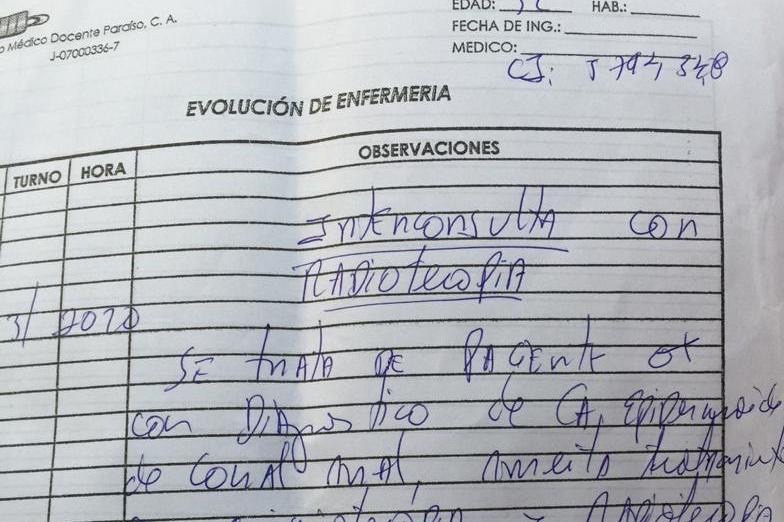 EDAD: HAB.:
FECHA DE ING.:
o Médico Docente Paraíso, C. A.
J-07000336-7
MEDICO:
CI:
EVOLUCIÓN DE ENFERMERIA
TURNO HORA OBSERVACIONES
Interconsulta con
Radioterapia
3/ 2020
SE trata DE Paciente
con Diagnostico de CA, Epidermoide
de Canal anal, amerita tratamient
Radioterapia